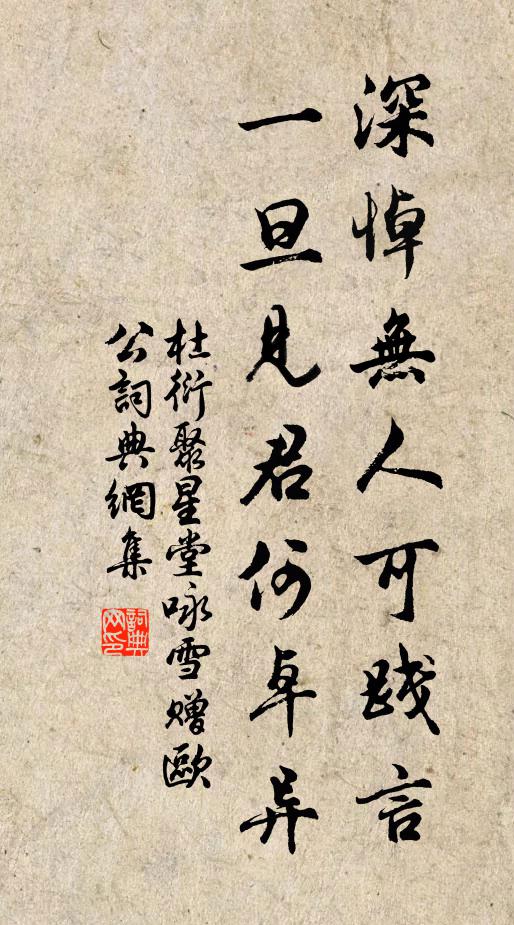 深悼無人可践言
一旦見君何卓异
杜衍聚星堂咏雪赠歐
公詞典網集
詞典网印